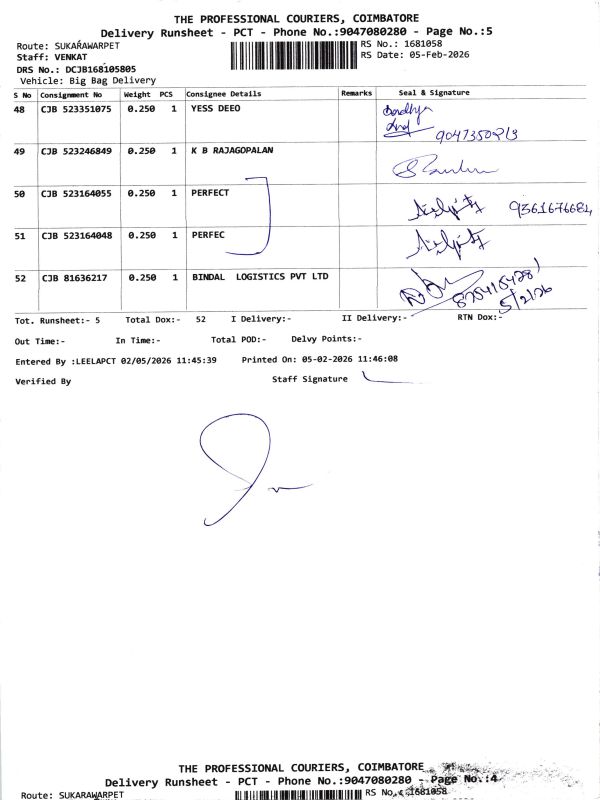 THE PROFESSIONAL COURIERS, COIMBATORE
Delivery Runsheet - PCT - Phone No.:9047080280 - Page No.:5
Route: SUKARAWARPET
RS No.: 1681058
Staff: VENKAT
RS Date: 05-Feb-2026
DRS No.: DCJB168105805
Vehicle: Big Bag Delivery
S No Consignment No Weight PCS Consignee Details Remarks Seal & Signature
48 CJB 523351075 0.250 1 YESS DEEO
49 CJB 523246849 0.250 1 K B RAJAGOPALAN
50 CJB 523164055 0.250 1 PERFECT 9361676684
51 CJB 523164048 0.250 1 PERFEC
52 CJB 81636217 0.250 1 BINDAL LOGISTICS PVT LTD
5/2/26
Tot. Runsheet:- 5 Total Dox:- 52 I Delivery:- II Delivery:- RTN Dox:-
Out Time:- In Time:- Total POD:- Delvy Points:-
Entered By :LEELAPCT 02/05/2026 11:45:39 Printed On: 05-02-2026 11:46:08
Verified By Staff Signature
THE PROFESSIONAL COURIERS, COIMBATORE
Delivery Runsheet - PCT - Phone No.:9047080280 - Page No.:4
Route: SUKARAWARPET RS No.: 1681058